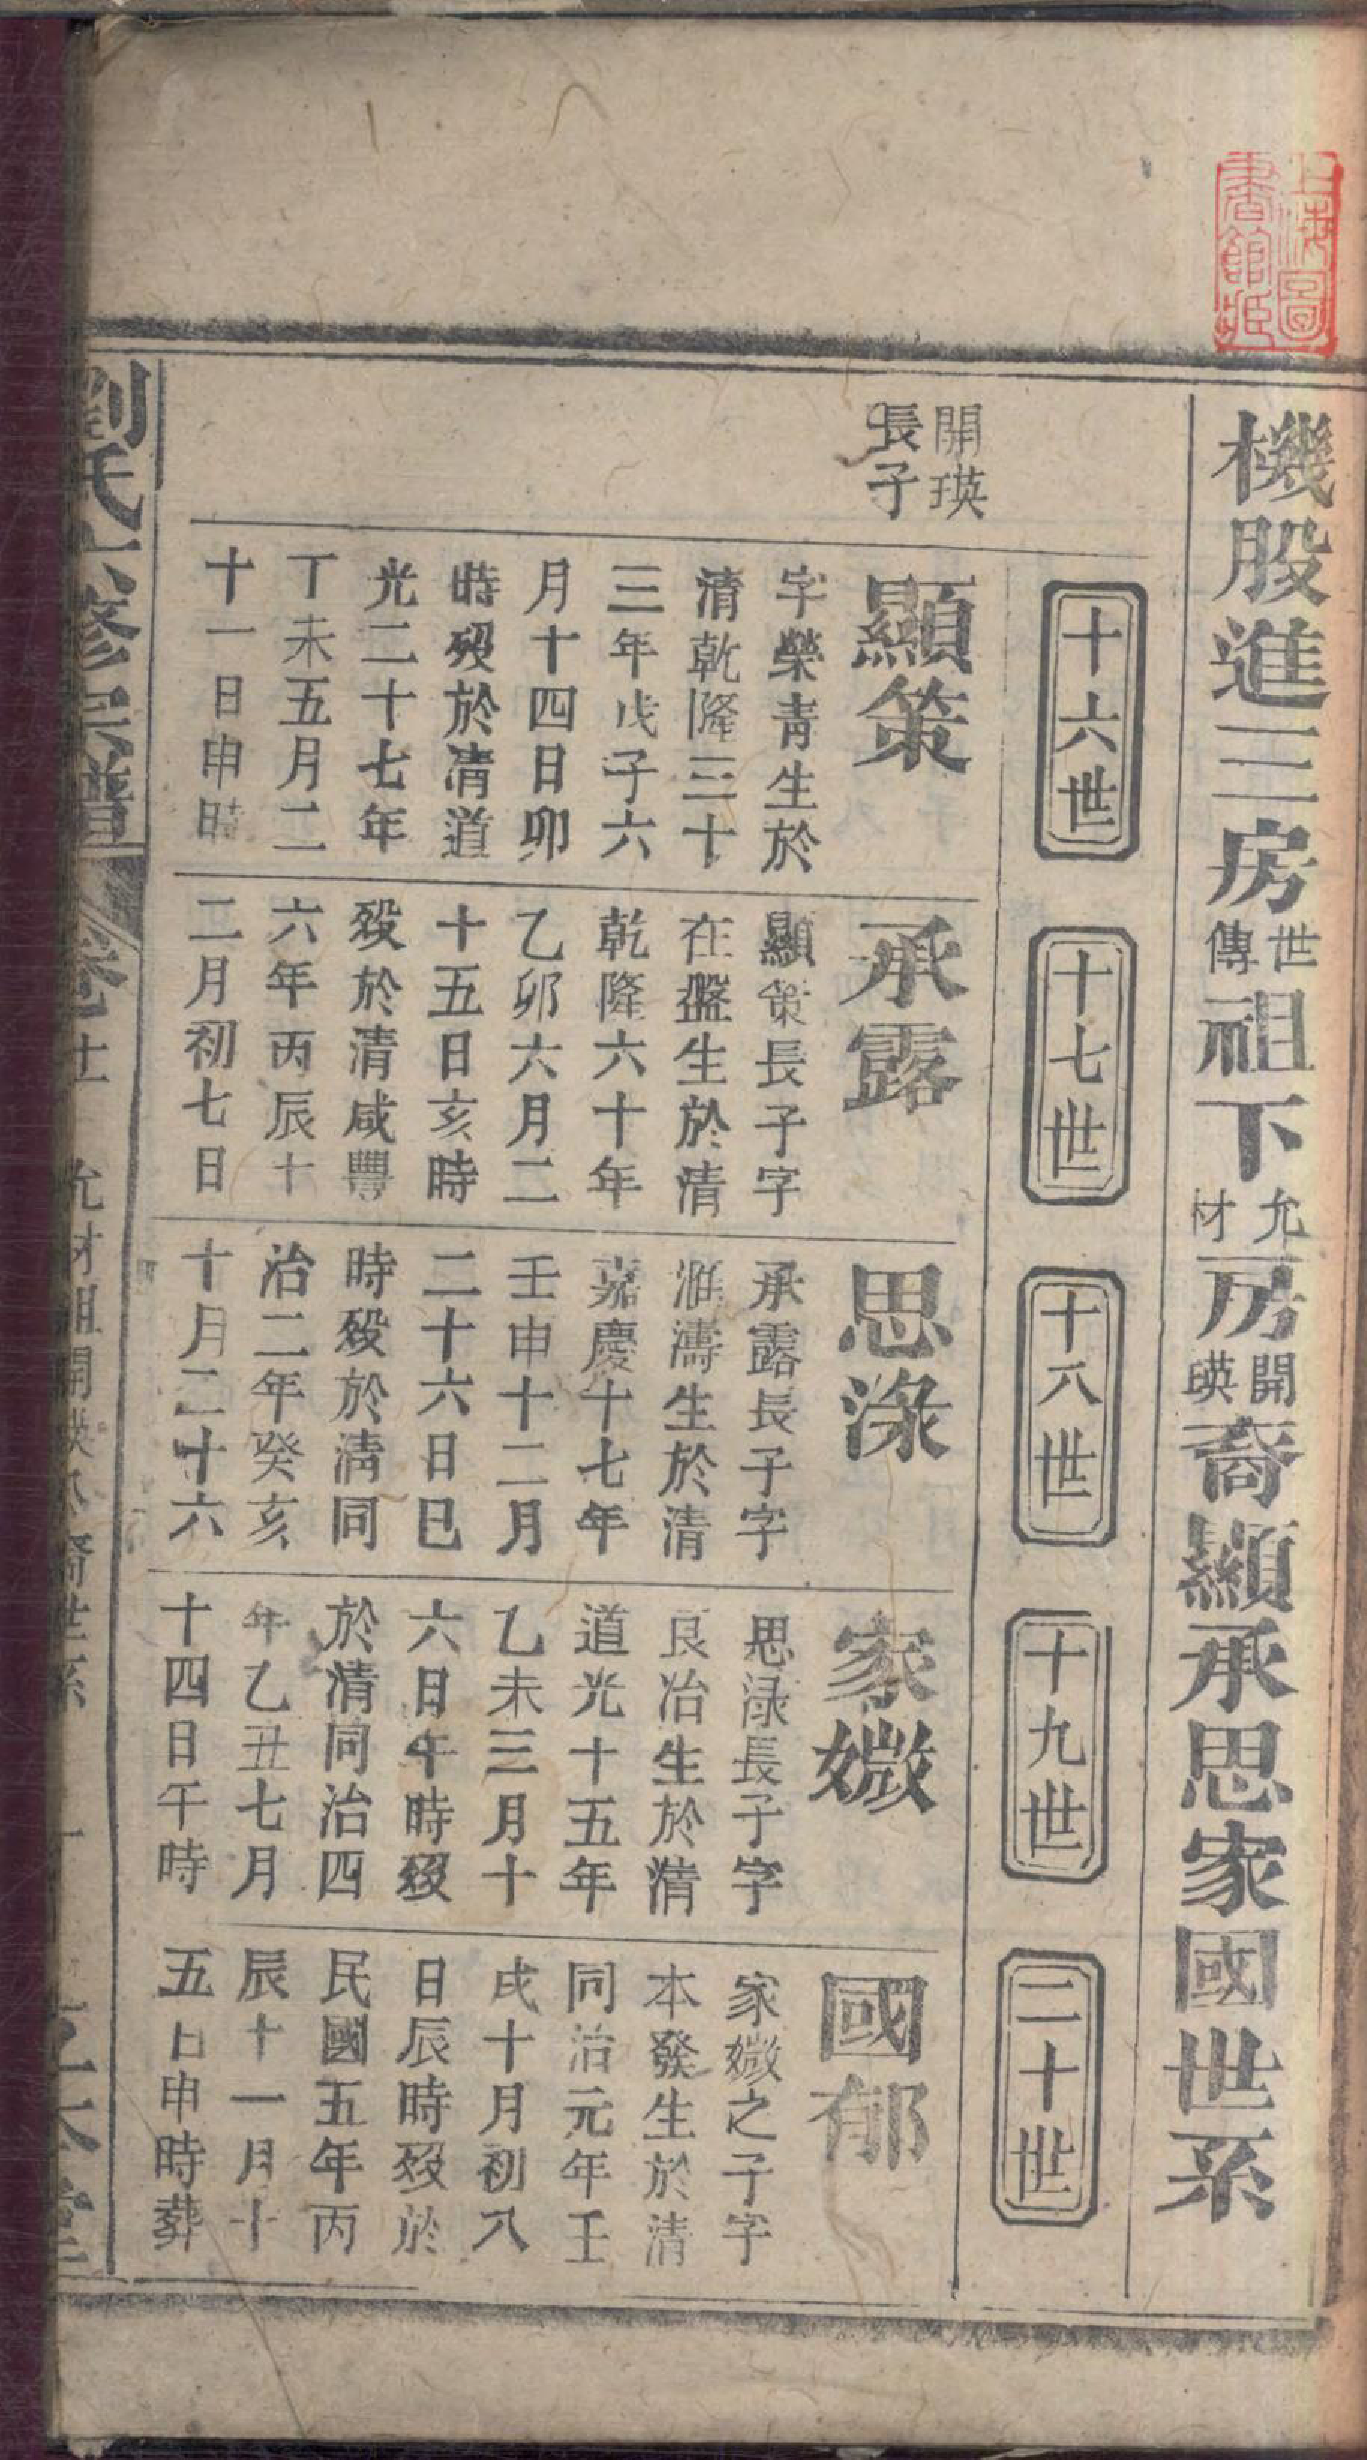 上海圖
書館藏
機股進三房世傳祖下允材房開瑛裔顯承思家國世系
十六世
十七世
十八世
十九世
二十世
開瑛
長子
顯策
字榮青生於
清乾隆三十
三年戊子六
月十四日卯
時殁於清道
光二十七年
丁未五月二
十一日申時
承露
顯策長子字
在盤生於清
乾隆六十年
乙卯六月二
十五日亥時
殁於清咸豐
六年丙辰十
二月初七日
思淥
承露長子字
滙濤生於清
嘉慶十七年
壬申十二月
二十六日巳
時殁於清同
治二年癸亥
十月二十六
家媺
思淥長子字
良冶生於清
道光十五年
乙未三月十
六日午時殁
於清同治四
年乙丑七月
十四日午時
國郁
家媺之子字
本發生於清
同治元年壬
戌十月初八
日辰時殁於
民國五年丙
辰十一月十
五日申時葬
劉氏六修宗譜
卷十一
允材祖開瑛公裔世系
一